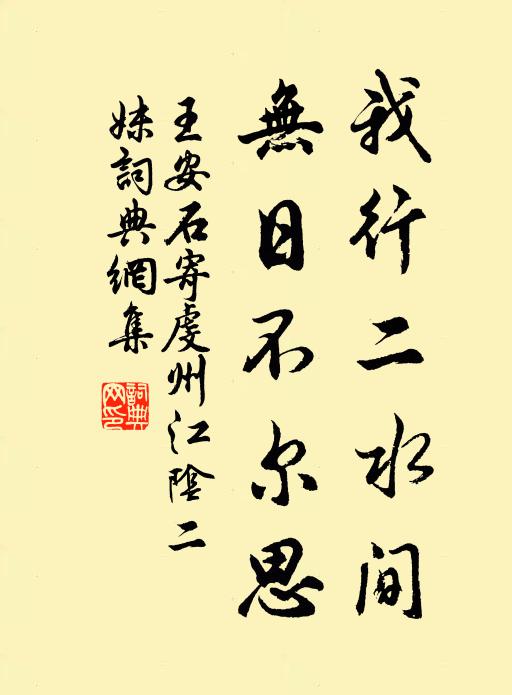 我行二水间
無日不尔思
王安石寄虔州江陰二
妹詞典網集
詞典
网印